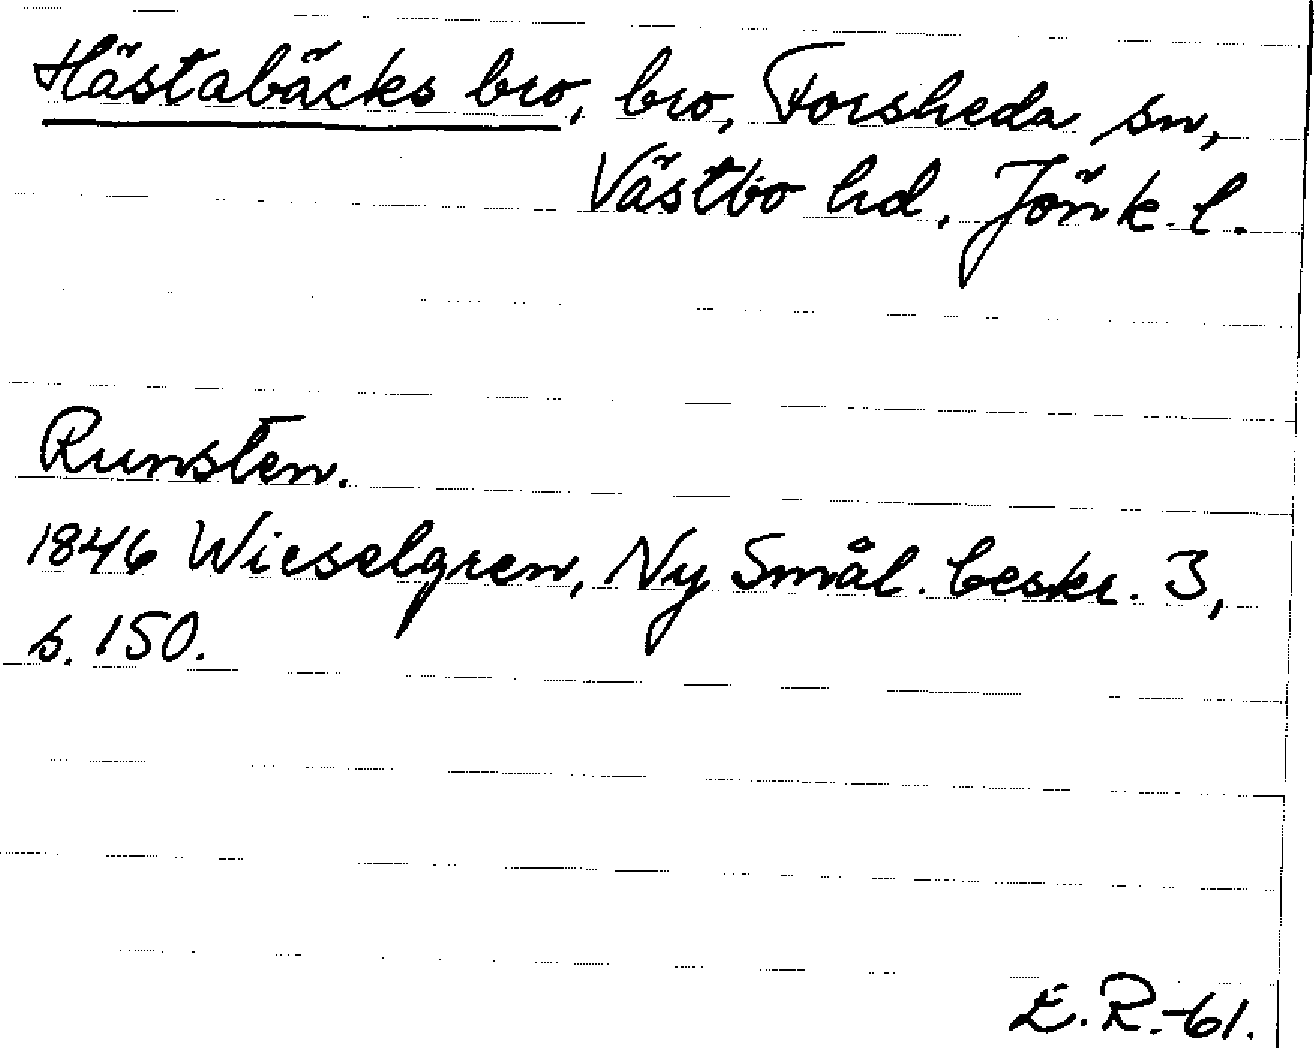 Hästabäcks bro, bro, Forsheda sn,
Västbo hd, Jönk. l.
Runsten.
1846 Wieselgren, Ny Smål. beskr. 3,
s. 150.
E.R.-61.